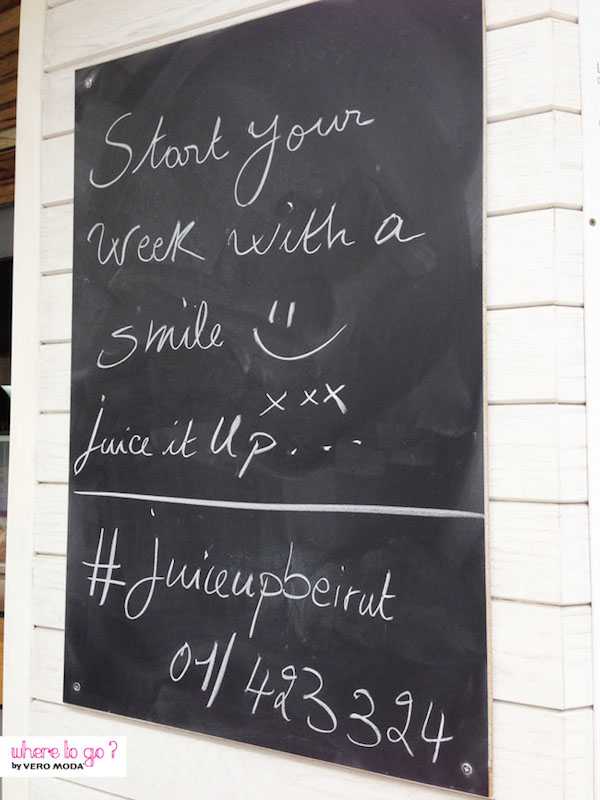 Start your
week with a
smile
xxx
juice it up...
#juiceupbeirut
01/423324
where to go?
by VERO MODA